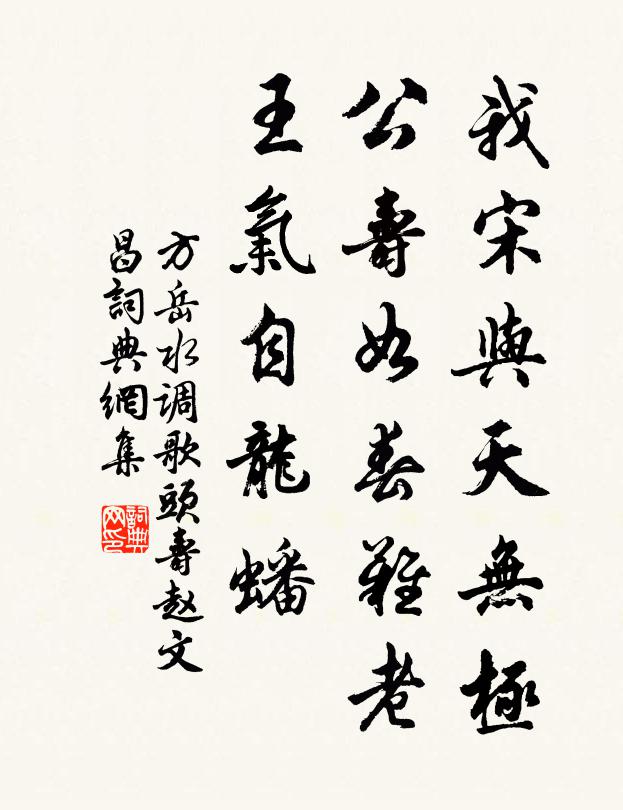 我宋與天無極
公壽如春難老
王氣自龍蟠
方岳水调歌頭壽赵文
昌詞典網集
詞典
网印